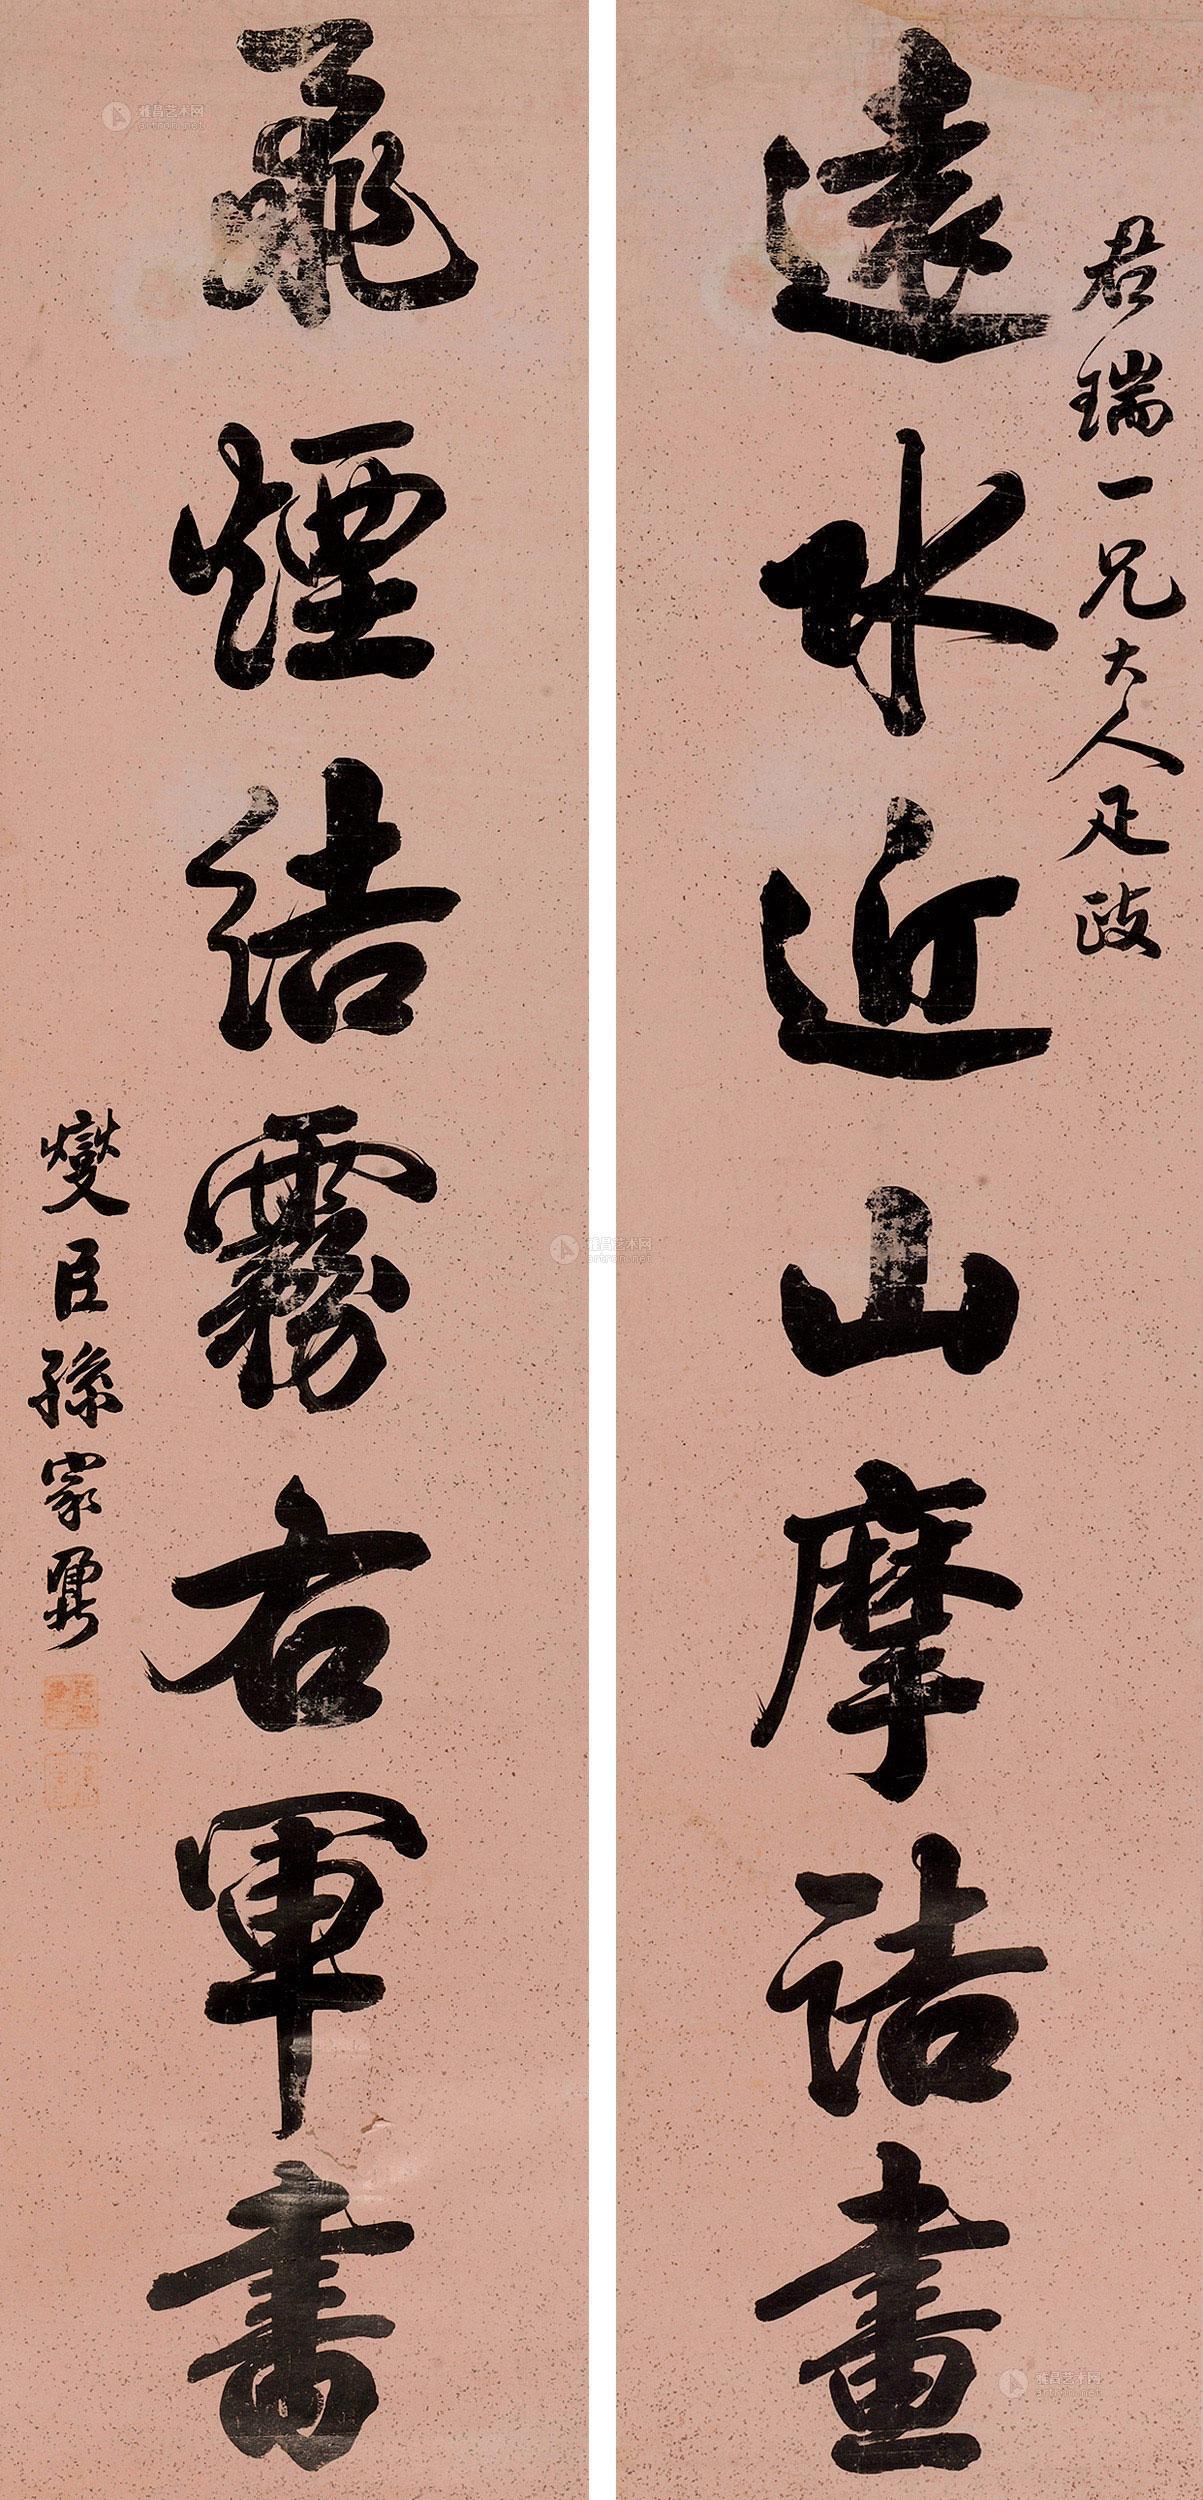 君瑞一兄大人疋政
遠水近山摩詰畫
飛煙結霧右軍書
燮臣孫家鼐
雅昌艺术网
artron.net
雅昌艺术网
artron.net
雅昌艺术网
artron.net